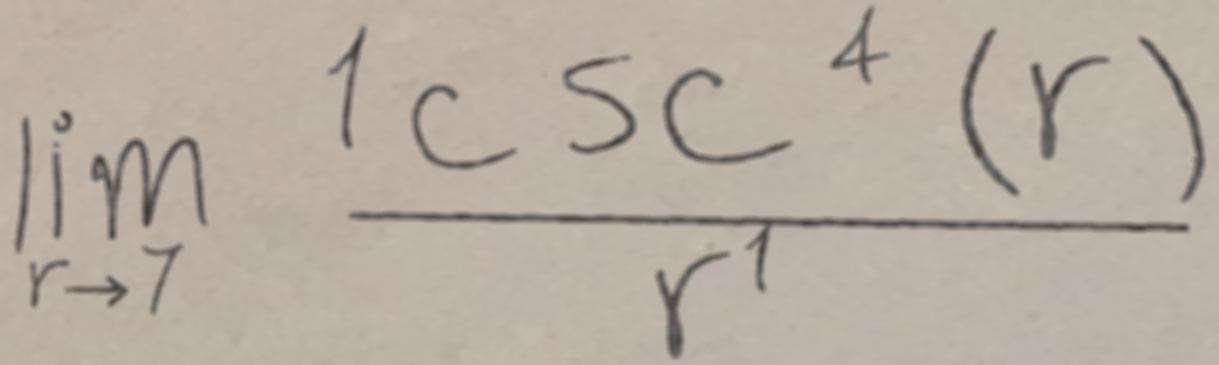 \lim_{r \to 7} \frac{1 \csc^4(r)}{r^1}